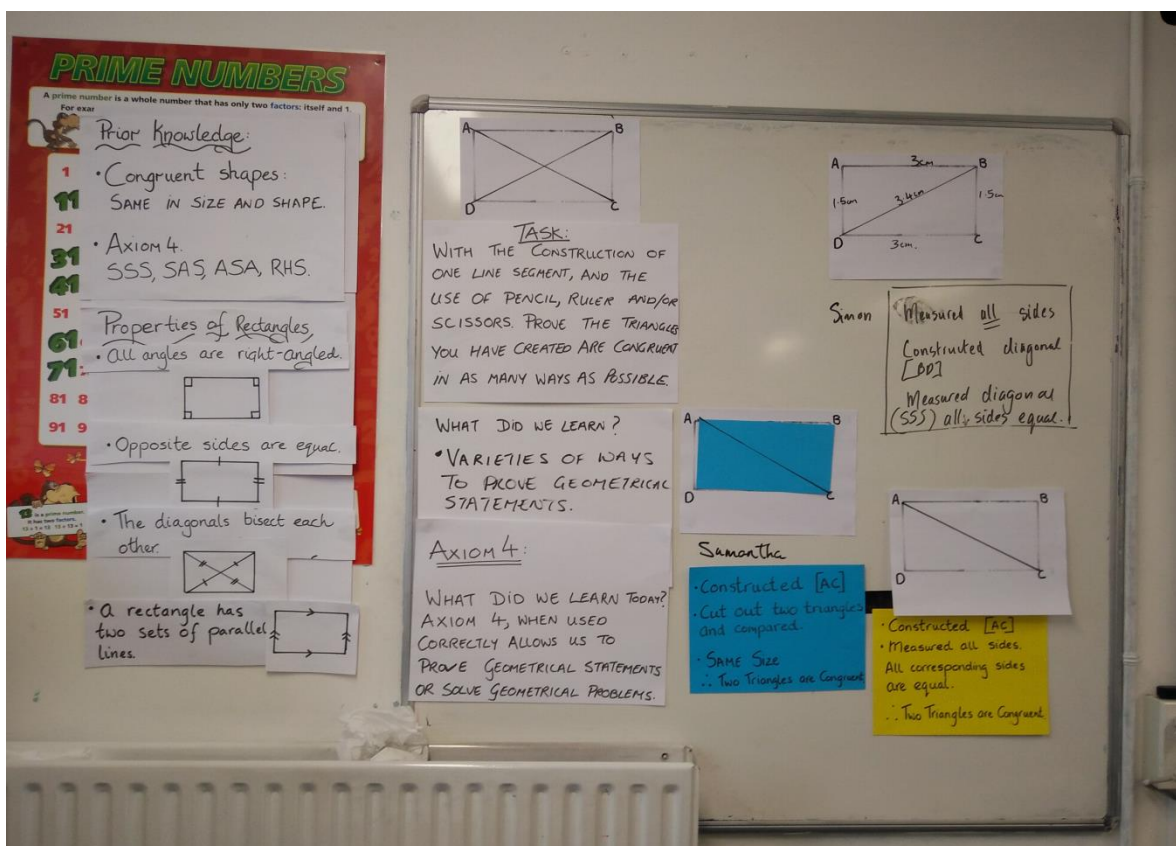 PRIME NUMBERS
A prime number is a whole number that has only two factors: itself and 1.
For exar
Prior Knowledge:
• Congruent shapes:
SAME IN SIZE AND SHAPE.
• AXIOM 4.
SSS, SAS, ASA, RHS.
1
11
21
31
41
51
61
71
81 8
91 9
Properties of Rectangles,
• All angles are right-angled.
• Opposite sides are equal.
• The diagonals bisect each
other.
• A rectangle has
two sets of parallel
lines.
is a prime number.
It has two factors.
A
B
D
C
TASK:
WITH THE CONSTRUCTION OF
ONE LINE SEGMENT, AND THE
USE OF PENCIL, RULER AND/OR
SCISSORS. PROVE THE TRIANGLES
YOU HAVE CREATED ARE CONGRUENT
IN AS MANY WAYS AS POSSIBLE.
WHAT DID WE LEARN?
• VARIETIES OF WAYS
TO PROVE GEOMETRICAL
STATEMENTS.
AXIOM 4:
WHAT DID WE LEARN TODAY?
AXIOM 4, WHEN USED
CORRECTLY ALLOWS US TO
PROVE GEOMETRICAL STATEMENTS
OR SOLVE GEOMETRICAL PROBLEMS.
A
3cm
B
1.5cm
3.4cm
1.5cm
D
3cm.
C
Simon
Measured all sides
Constructed diagonal
[BD]
Measured diagonal
(SSS) all sides equal.
A
B
D
C
Samantha
• Constructed [AC]
• Cut out two triangles
and compared.
• SAME SIZE
∴ Two Triangles are Congruent
A
B
D
C
• Constructed [AC]
• Measured all sides.
All corresponding sides
are equal.
∴ Two Triangles are Congruent